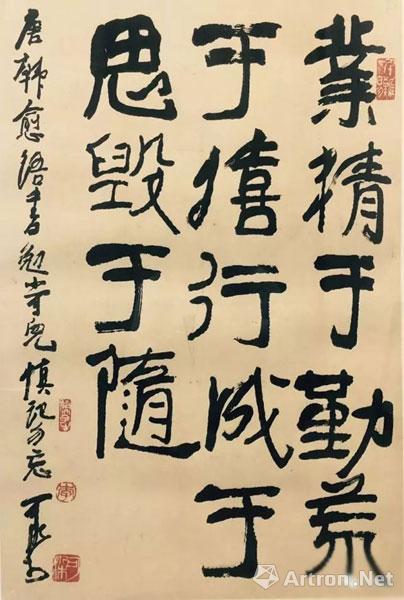 業精于勤荒
于嬉行成于
思毀于隨
唐韓愈語書勉兒慎記勿忘
Artron.Net